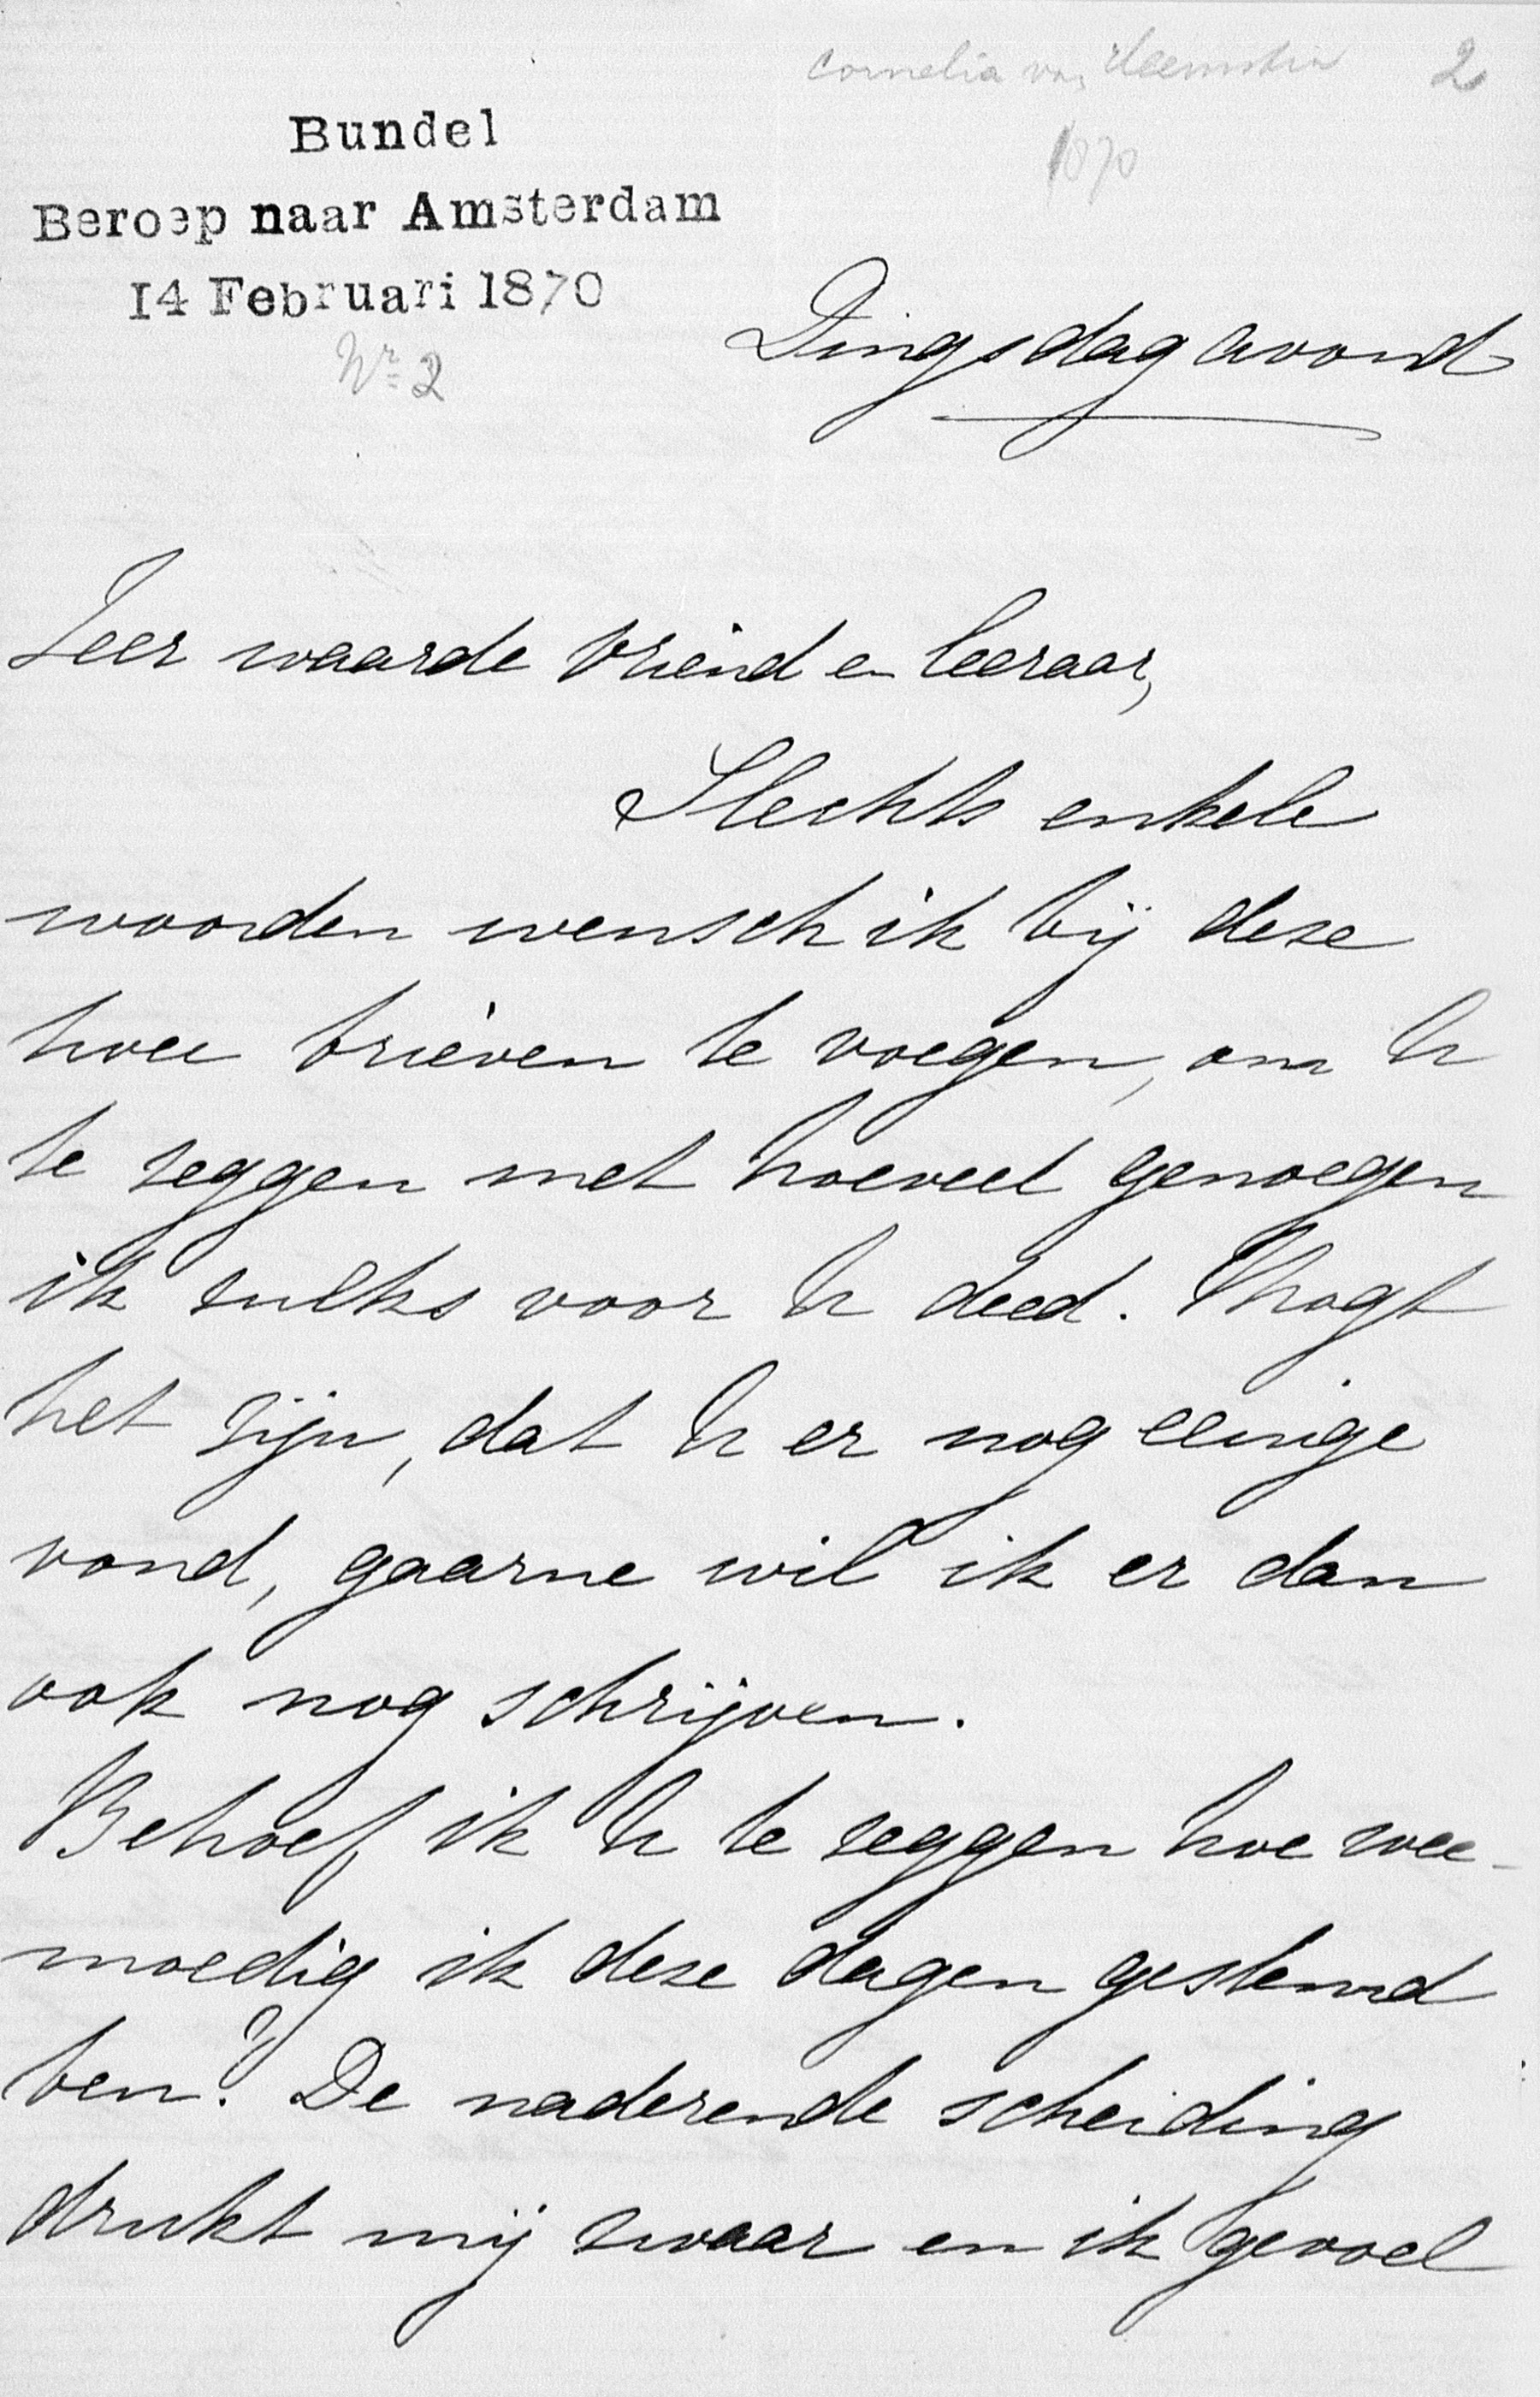 Cornelia van Heemstra 2
1870
Bundel
Beroep naar Amsterdam
14 Februari 1870
Nr 2
Dingsdag avond
Zeer waarde vriend en leeraar,
Slechts enkele
woorden wensch ik bij deze
twee brieven te voegen, om U
te zeggen met hoeveel genoegen
ik zulks voor U deed. Mogt
het zijn, dat U er nog eenige
vond, gaarne wil ik er dan
ook nog schrijven.
Behoef ik U te zeggen hoe wee-
moedig ik deze dagen gestemd
ben? De naderende scheiding
drukt mij zwaar en ik gevoel